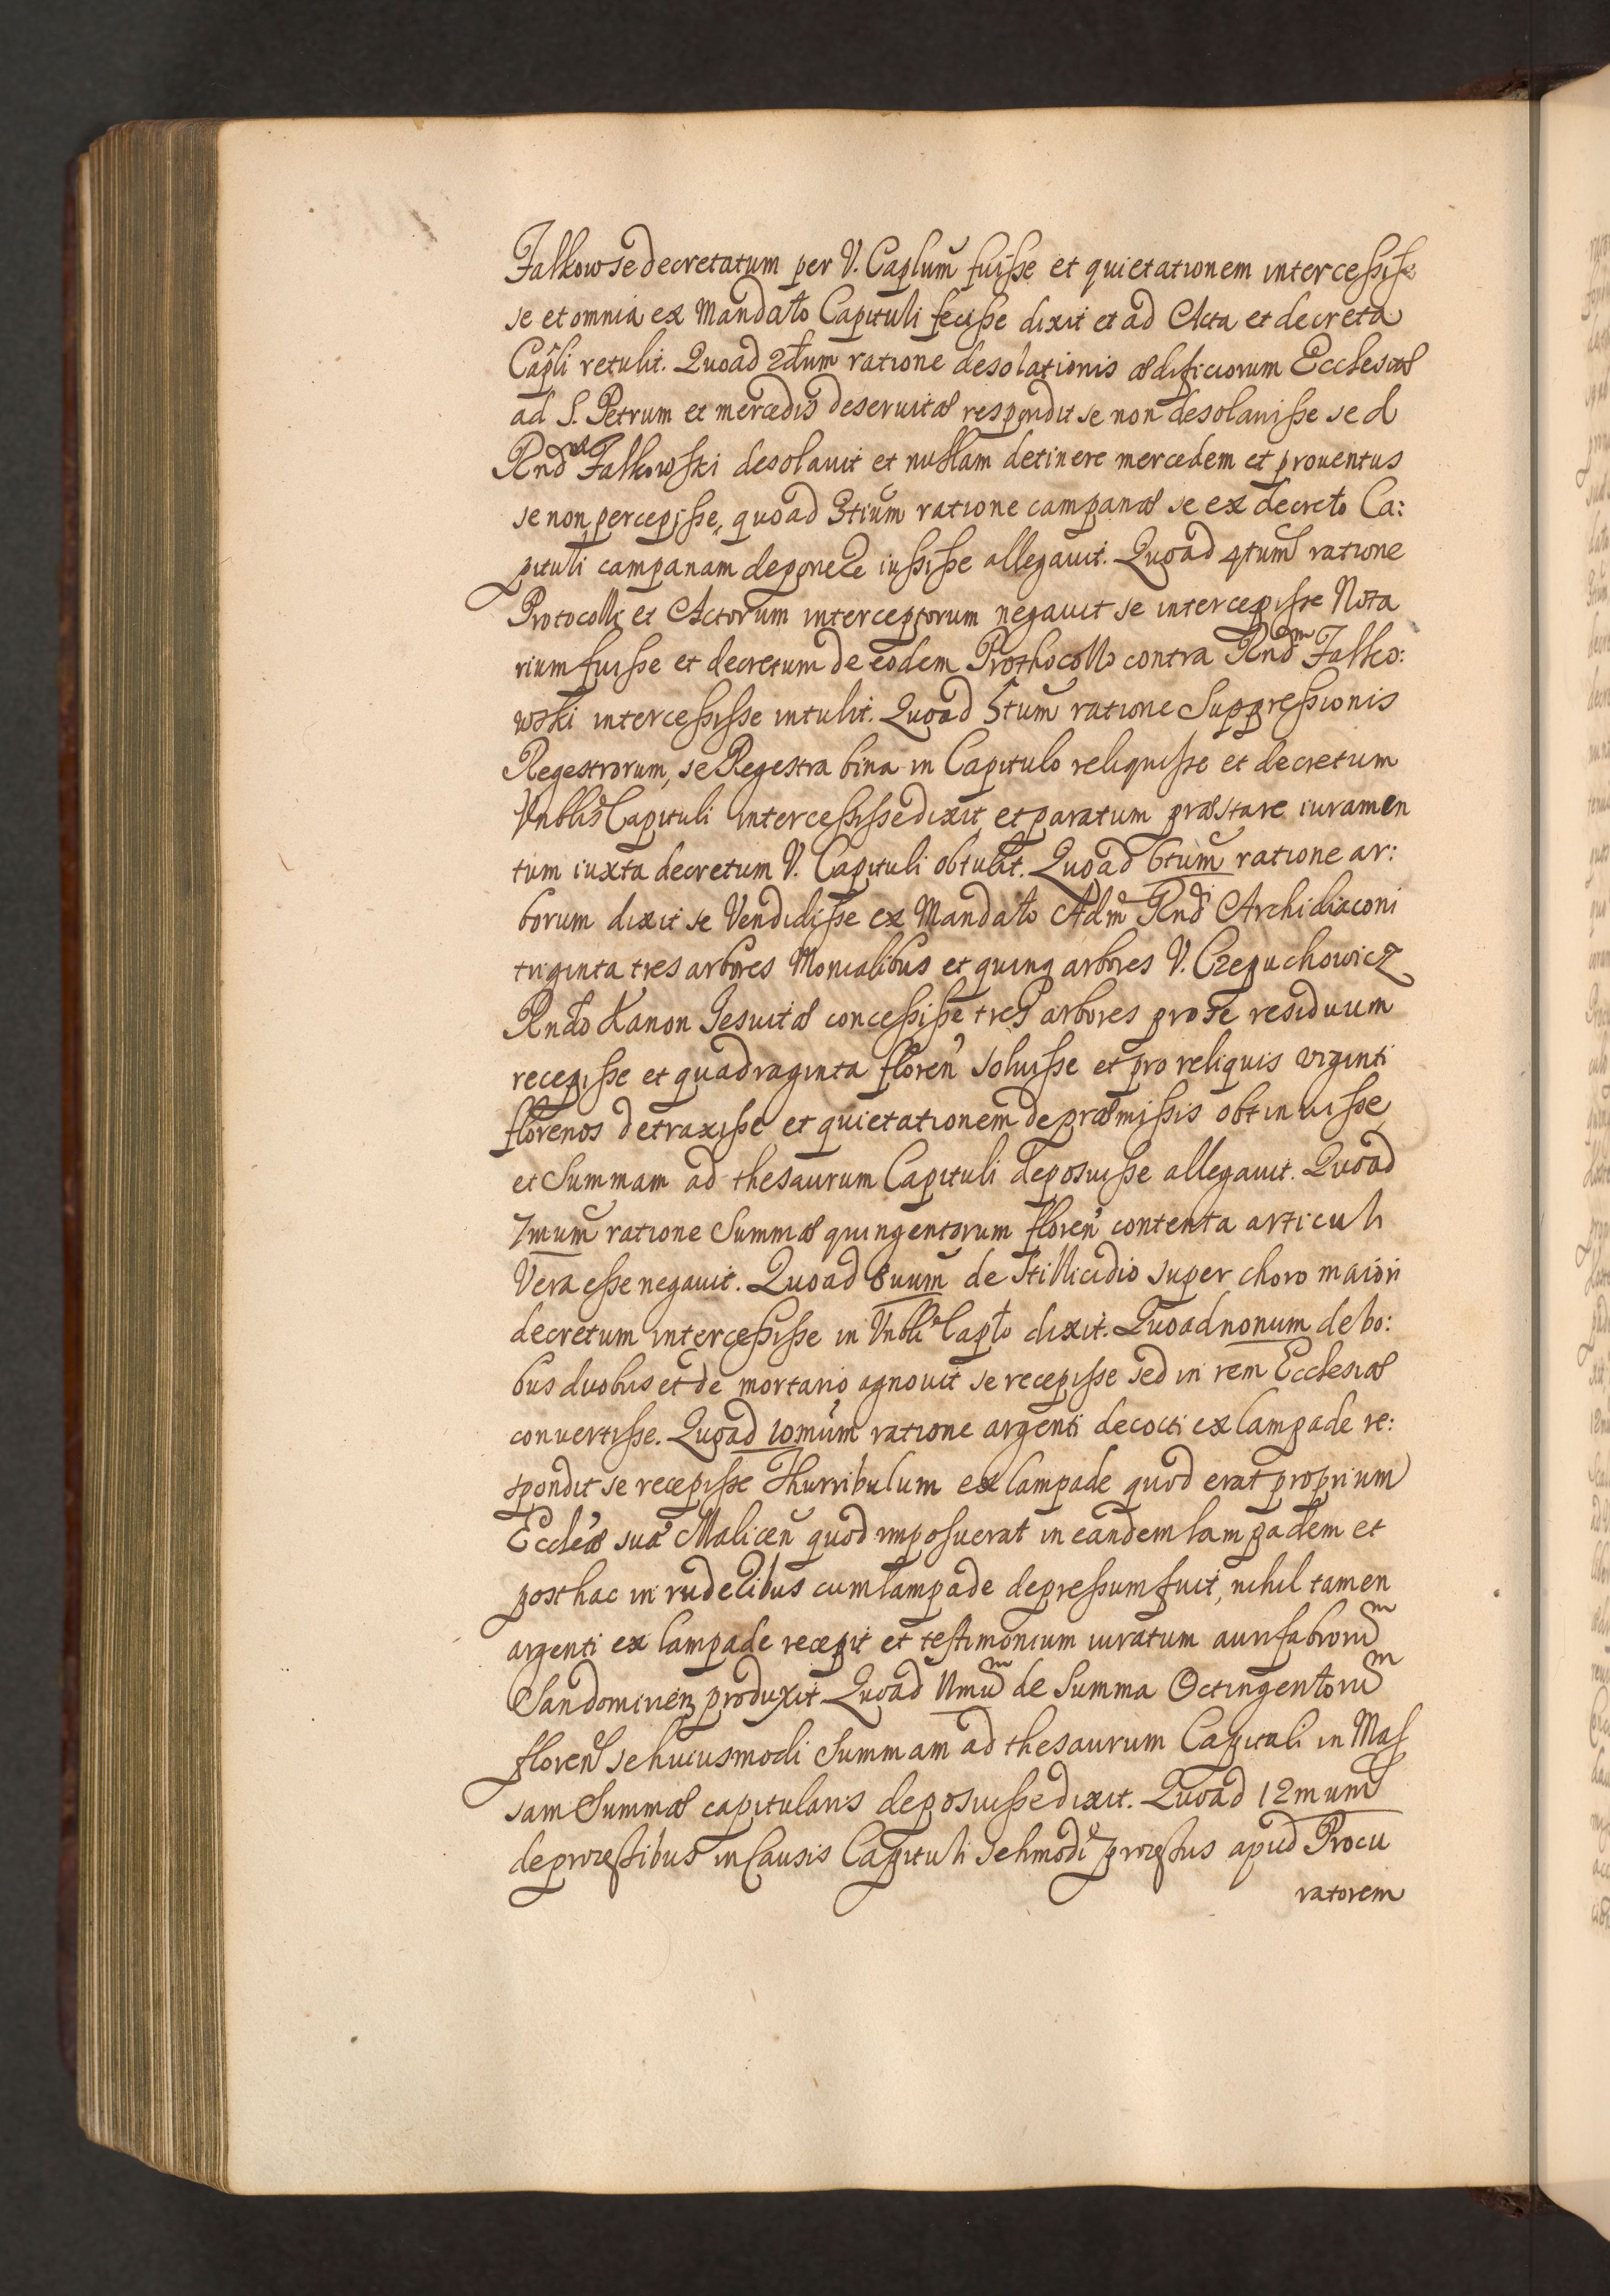 Falkow se decretatum per V. Caplum̃ fuisse et quietationem intercessis
se et omnia ex Mandato Capituli fecisse dixit et ad Acta et decreta
Capli retulit. Quoad 2dum ratione desolationis ædificiorum Ecclesiæ
ad S. Petrum et mercedis deservitæ respondit se non desolavisse sed
Rnd Falkowski desolavit et nullam detinere mercedem et proventus
se non percepisse, quoad 3tium ratione campanæ se ex decreto Ca:
pituli campanam deponere iussisse allegavit. Quoad 4tum ratione
Protocolli et Actorum interceptorum negavit se intercepisse Nota
rium fuisse et decretum de eodem Prothocollo contra Rndm Falko:
wski intercessisse intulit. Quoad 5tum ratione Suppressionis
Regestrorum, se Regestra bina in Capitulo reliquisse et decretum
Vnblis Capituli intercessisse dixit et paratum præstare iuramen
tum iuxta decretum V. Capituli obtulit. Quoad 6tum ratione ar:
borum dixit se Vendidisse ex Mandato Adm Rndi Archidiaconi
triginta tres arbores Monialibus et quinq arbores V. Czepuchowicz
Rndo Kanon Jesuitæ concessisse tres arbores pro se residuum
recepisse et quadraginta floren solvisse et pro reliquis viginti
florenos detraxisse et quietationem de præmissis obtinuisse
et Summam ad thesaurum Capituli deposuisse allegavit. Quoad
7mum ratione Summæ quingentorum floren contenta articuli
Vera esse negavit. Quoad 8uum de stillicidio super choro maiori
decretum intercessisse in Vnbli Caplo dixit. Quoad nonum de bo:
bus duobus et de mortario agnovit se recepisse sed in rem Ecclesiæ
convertisse. Quoad 10mum ratione argenti decocti ex lampade re:
spondit se recepisse Thurribulum ex lampade quod erat proprium
Eccleæ suæ Malicen quod imposuerat in eandem lampadem et
posthac in ruderibus cum lampade depressum fuit, nihil tamen
argenti ex lampade recepit et testimonium iuratum aurifabrorum
Sandomirien produxit Quoad 11mum de Summa Octingentorum
floren se huiusmodi Summam ad thesaurum Capituli in Mas
sam Summæ capitularis deposuisse dixit. Quoad 12mum
de processibus in Causis Capituli se hmodi processus apud Procu
ratorem